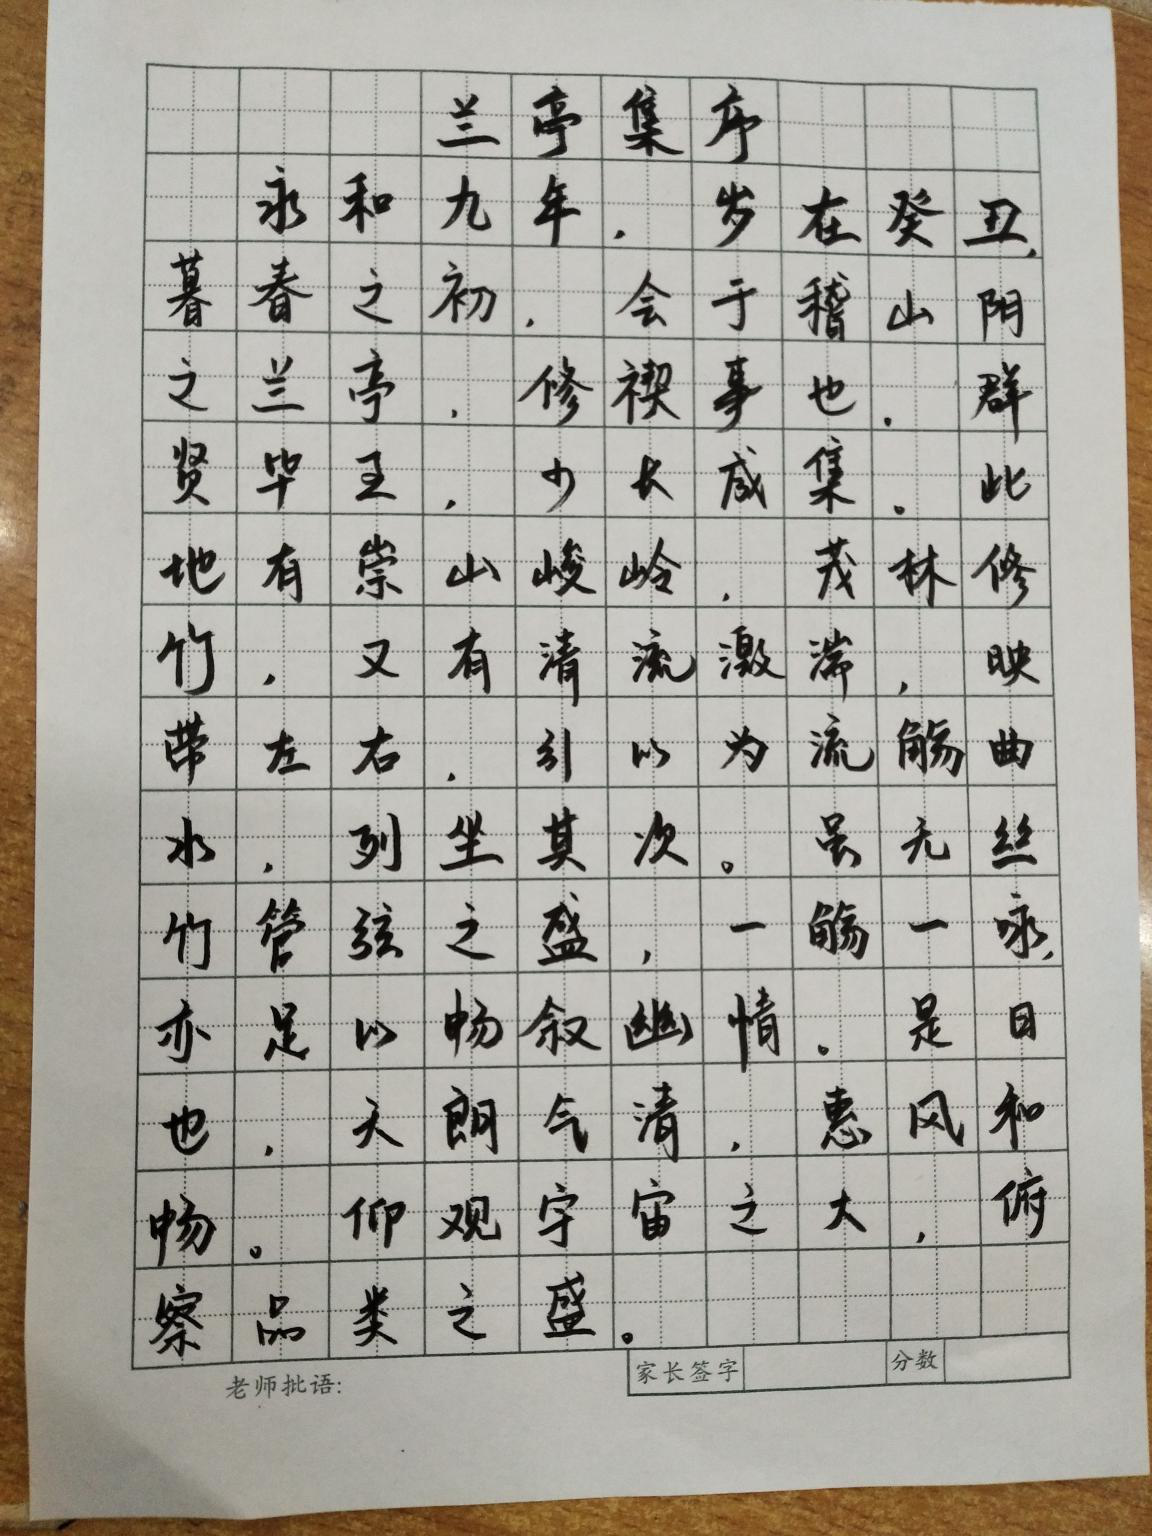 兰亭集序
永和九年，岁在癸丑，
暮春之初，会于稽山阴
之兰亭，修禊事也。群
贤毕至，少长咸集。此
地有崇山峻岭，茂林修
竹，又有清流激湍，映
带左右，引以为流觞曲
水，列坐其次。虽无丝
竹管弦之盛，一觞一咏，
亦足以畅叙幽情。是日
也，天朗气清，惠风和
畅。仰观宇宙之大，俯
察品类之盛。
老师批语:
家长签字
分数